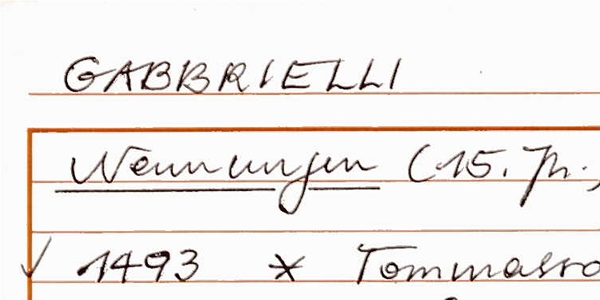 GABBRIELLI
Nennungen (15. Jh.,
✓ 1493 * Tommaso